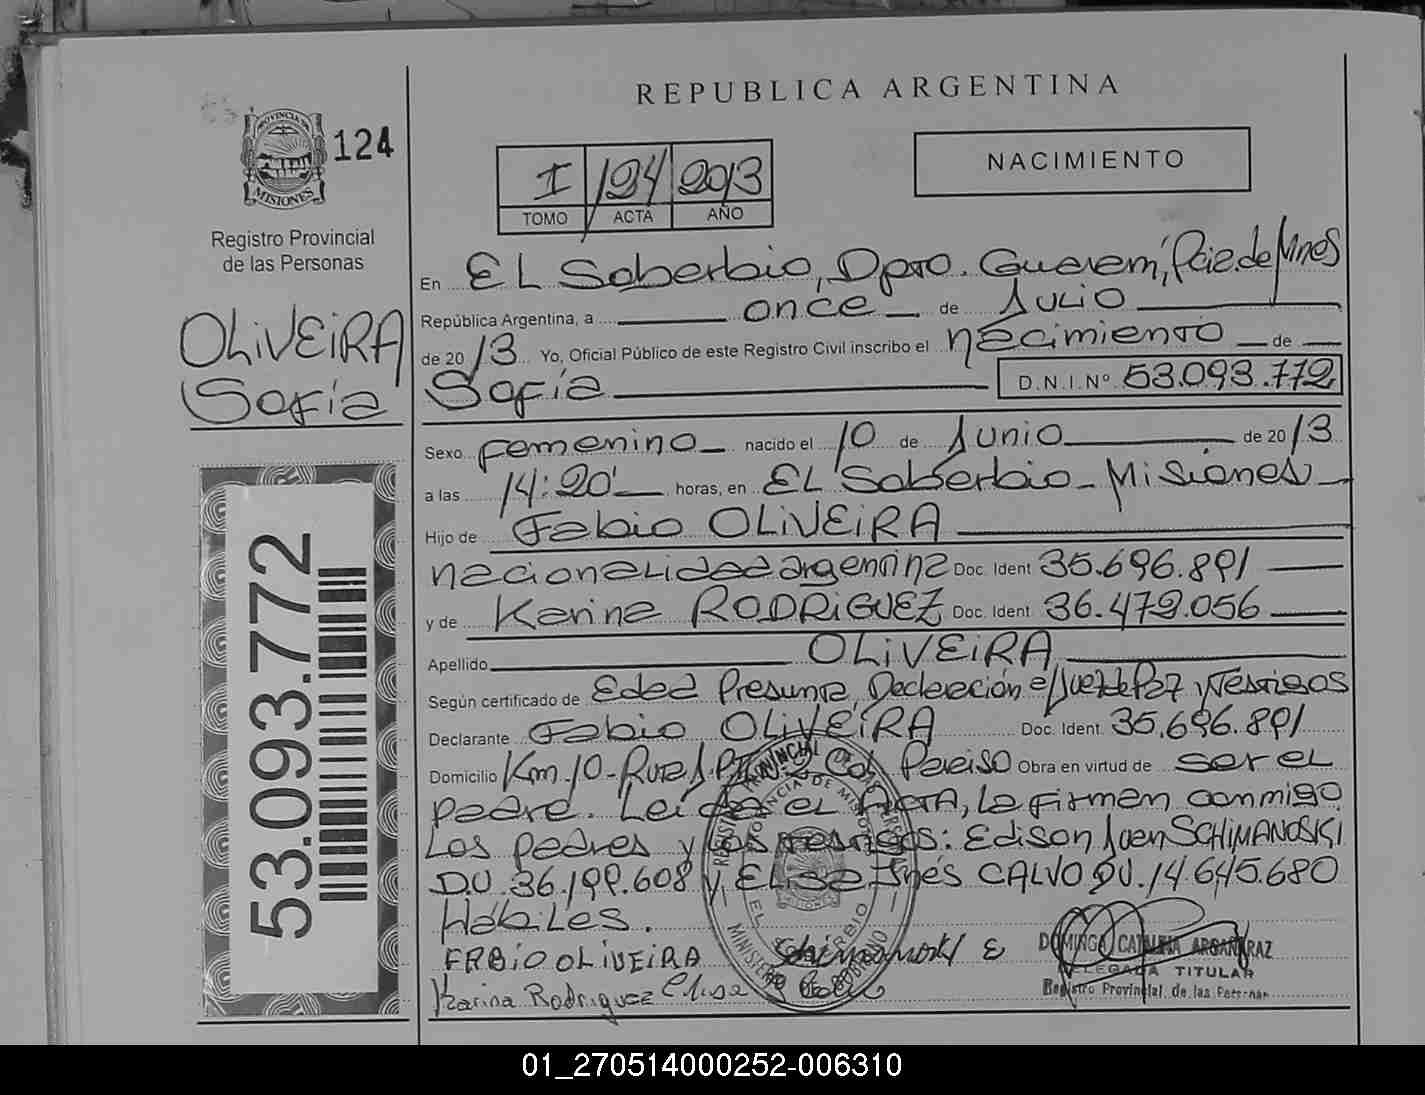 REPUBLICA ARGENTINA
PROVINCIA DE
MISIONES
124
Registro Provincial
de las Personas
I 124 2013
TOMO ACTA AÑO
NACIMIENTO
OLiVEiRA
Sofía
53.093.772
En EL Soberbio, Dpto. Guaraní, Pcia. de Mnes
República Argentina, a once de Julio
de 2013 Yo, Oficial Público de este Registro Civil inscribo el nacimiento de
Sofía D.N.I.Nº 53.093.772
Sexo femenino nacido el 10 de Junio de 2013
a las 14:20' horas, en EL Soberbio - Misiones
Hijo de Fabio OLiVEiRA
nacionalidad argentina Doc. Ident 35.696.891
y de Karina RODRiGUEZ Doc. Ident 36.472.056
Apellido OLiVEiRA
Según certificado de Edad Presunta, Declaración e/Juez de Paz y Testigos
Declarante Fabio OLiVEiRA Doc. Ident 35.696.891
Domicilio Km.10-Ruta Col. Paraiso Obra en virtud de ser eL
padre. Leída eL ActA, La firman conmigo
Los padres y Los testigos: Edison Juan SCHIMANOSKI
D.U. 36.199.608 y, ELisa Inés CALVO DU. 14.645.680
HábiLes.
FABiO OLiVEiRA Schimanoski E
Karina Rodriguez Elisa Calvo
DOMINGA CATALINA ARGAÑARAZ
DELEGADA TITULAR
Registro Provincial de las Personas
REGISTRO PROVINCIAL DE LAS PERSONAS
PROVINCIA DE MISIONES
EL SOBERBIO
MINISTERIO DE GOBIERNO
01_270514000252-006310